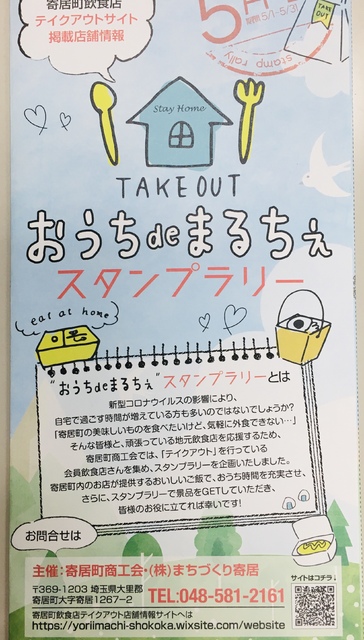 寄居町飲食店
テイクアウトサイト
掲載店舗情報
5月
期間 5/1-5/31
stamp rally
TAKE
OUT
Stay Home
TAKE OUT
おうちdeまるちぇ
スタンプラリー
eat at home
"おうちdeまるちぇ"スタンプラリーとは
新型コロナウイルスの影響により、
自宅で過ごす時間が増えている方も多いのではないでしょうか?
「寄居町の美味しいものを食べたいけど、気軽に外食できない…」
そんな皆様と、頑張っている地元飲食店を応援するため、
寄居町商工会では、「テイクアウト」を行っている
会員飲食店さんを集め、スタンプラリーを企画いたしました。
寄居町内のお店が提供するおいしいご飯で、おうち時間を充実させ、
さらに、スタンプラリーで景品をGETしていただき、
皆様のお役に立てれば幸いです!
お問合せは
主催:寄居町商工会・(株)まちづくり寄居
〒369-1203 埼玉県大里郡
寄居町大字寄居1267-2
TEL:048-581-2161
寄居町飲食店テイクアウト店舗情報サイトへは
https://yoriimachi-shokoka.wixsite.com/website
サイトはコチラ↓